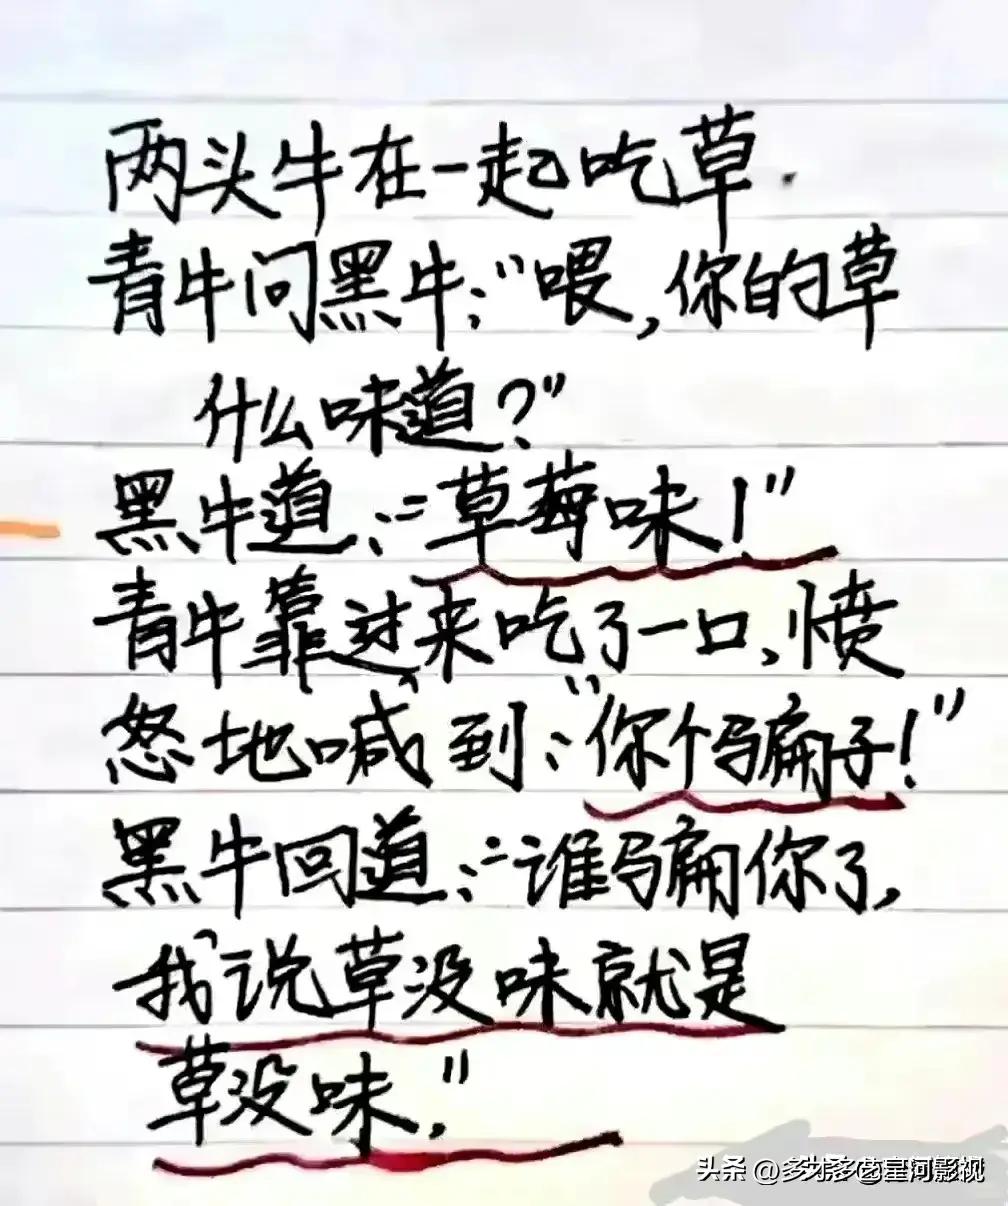 两头牛在一起吃草.
青牛问黑牛:“喂,你的草
什么味道?”
黑牛道:“草莓味!”
青牛靠过来吃了一口,愤
怒地喊到:“你个骗子!”
黑牛回道:“谁骗你了,
我说草没味就是
草没味,”
头条 @多才多艺星河影视